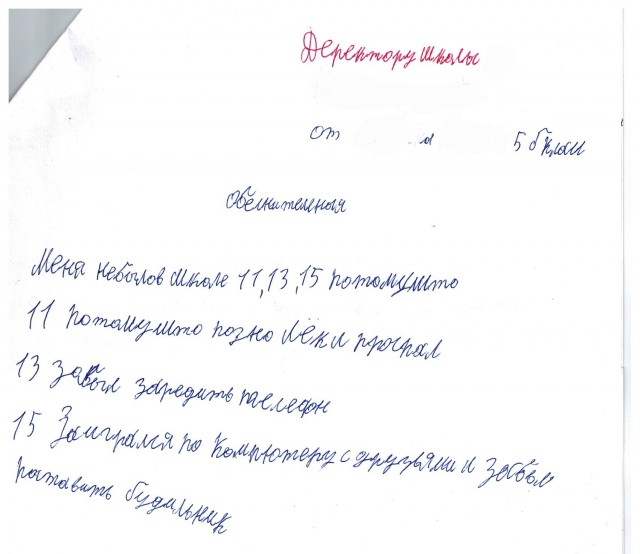 Деректору школы
от 5 б клас
Обеснителеная
Меня небылов школе 11, 13, 15 потомушто
11 потомушто позно лёк и проспал
13 забыл заредить тослефон
15 Заигрался по компютеру с друзьями и забыл
поставить будильник